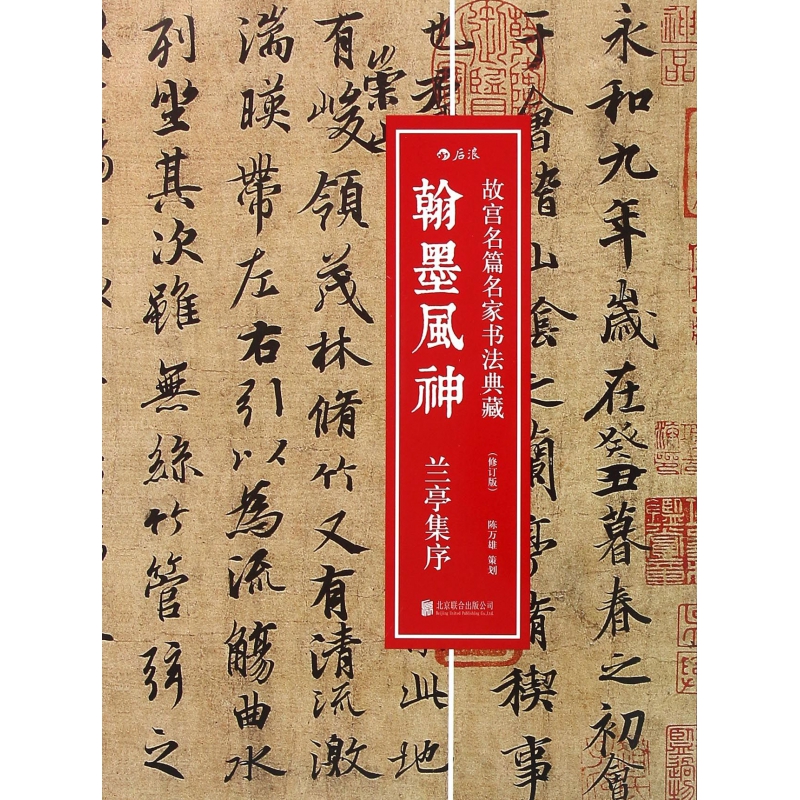 神品
永和九年歲在癸丑暮春之初會
于會稽山陰之蘭亭脩稧事
也羣
此地
崇
有峻領茂林脩竹又有清流激
湍暎帶左右引以為流觴曲水
列坐其次雖無絲竹管弦之
后浪
故宫名篇名家书法典藏
(修订版) 陈万雄 策划
翰墨風神
兰亭集序
北京联合出版公司
Beijing United Publishing Co.,Ltd.